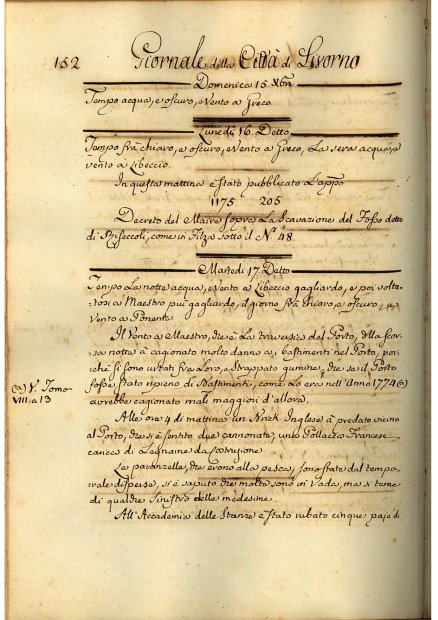 152 Giornale della Città di Livorno
Domenica 15 Xbre
Tempo acqua, e oscuro, e Vento a Greco.
Lunedì 16. Detto
Tempo frà chiaro, e oscuro, e Vento a Greco, La sera acqua, e
vento a Libeccio.
In questa mattina è stato pubblicato L'app.o
1175 205
Decreto del Maire sopra La Scavazione del Fosso detto
di, come in Filza sotto il N.o 48.
Martedì 17. Detto
Tempo La notte acqua, e Vento a Libeccio gagliardo, e poi volta-
tosi a Maestro più gagliardo, il giorno frà chiaro, e oscuro, e
Vento a Ponente.
Il Vento a Maestro, che è La traversia del Porto, alla scor-
sa notte à cagionato molto danno a i bastimenti nel Porto, poi-
chè si sono urtati fra Loro, e strappato gumine, che se il Porto
fosse stato ripieno di Bastimenti, come Lo era nell'Anno 1774 (a)
avrebbe cagionato mali maggiori d'allora.
(a) V. Tomo
VIII. a 13
Alle ore 4 di mattina un Brick Inglese à predato vicino
al Porto, che si è sentito due cannonate, una Pollacra Francese
carica di Legname da costruzione
Le paranzelle, che erono alla pesca, sono state dal tempo-
rale disperse, si è saputo che molte sono in Vada, ma si teme
di qualche sinistro delle medesime.
All'Accademia delle Stanze è stato rubato cinque paje di